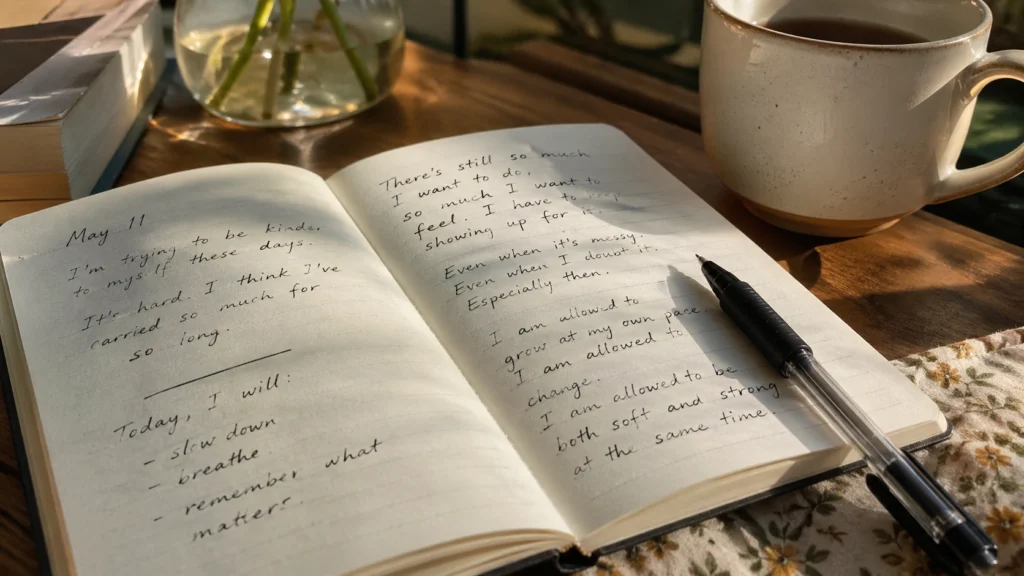 May 11
I'm trying to be kind.
to mys lf these days.
It's hard. I think I've
carried so much for
so long.
Today, I will:
- slow down
- breathe.
- remember what
matter.
There's still so much
I want to do,
so much I want to
feel. I have to
showing up for
Even when it's messy.
Even when I doubt it.
Especially then.
I am allowed to
grow at my own pace.
I am allowed to
change.
I am allowed to be
both soft and strong
at the same time.